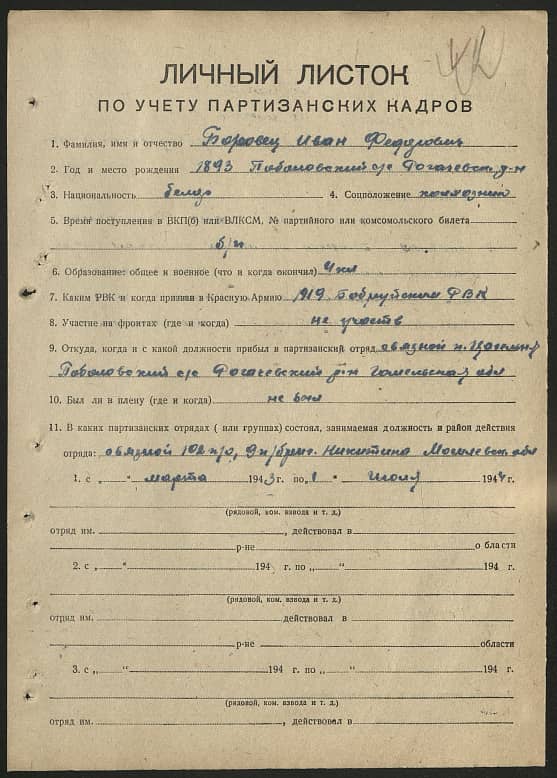 ЛИЧНЫЙ ЛИСТОК
ПО УЧЕТУ ПАРТИЗАНСКИХ КАДРОВ
1. Фамилия, имя и отчество Боровец Иван Федорович
2. Год и место рождения 1893 Поболовский с/с Рогачевск. р-н
3. Национальность белор 4. Соцположение колхозник
5. Время поступления в ВКП(б) или ВЛКСМ, № партийного или комсомольского билета
б/п
6. Образование: общее и военное (что и когда окончил) 4 кл
7. Каким РВК и когда призван в Красную Армию 1919 Бобруйским РВК
8. Участие на фронтах (где и когда) не участв
9. Откуда, когда и с какой должности прибыл в партизанский отряд связной п.
Поболовский с/с Рогачевский р-н Гомельская обл
10. Был ли в плену (где и когда) не был
11. В каких партизанских отрядах ( или группах) состоял, занимаемая должность и район действия
отряда: связной 102 п/о, 9 п/бриг. Никитина Могилевск. обл
1. с „ “ марта 1943 г. по „1 “ июль 1944 г.
(рядовой, ком. взвода и т. д.)
отряд им. , действовал в
р-не о бласти
2. с „ “ 194 г. по „ “ 194 г.
(рядовой, ком. взвода и т. д.)
отряд им. действовал в
р-не области
3. с „ “ 194 г. по „ “ 194 г.
(рядовой, ком. взвода и т. д.)
отряд им. , действовал в